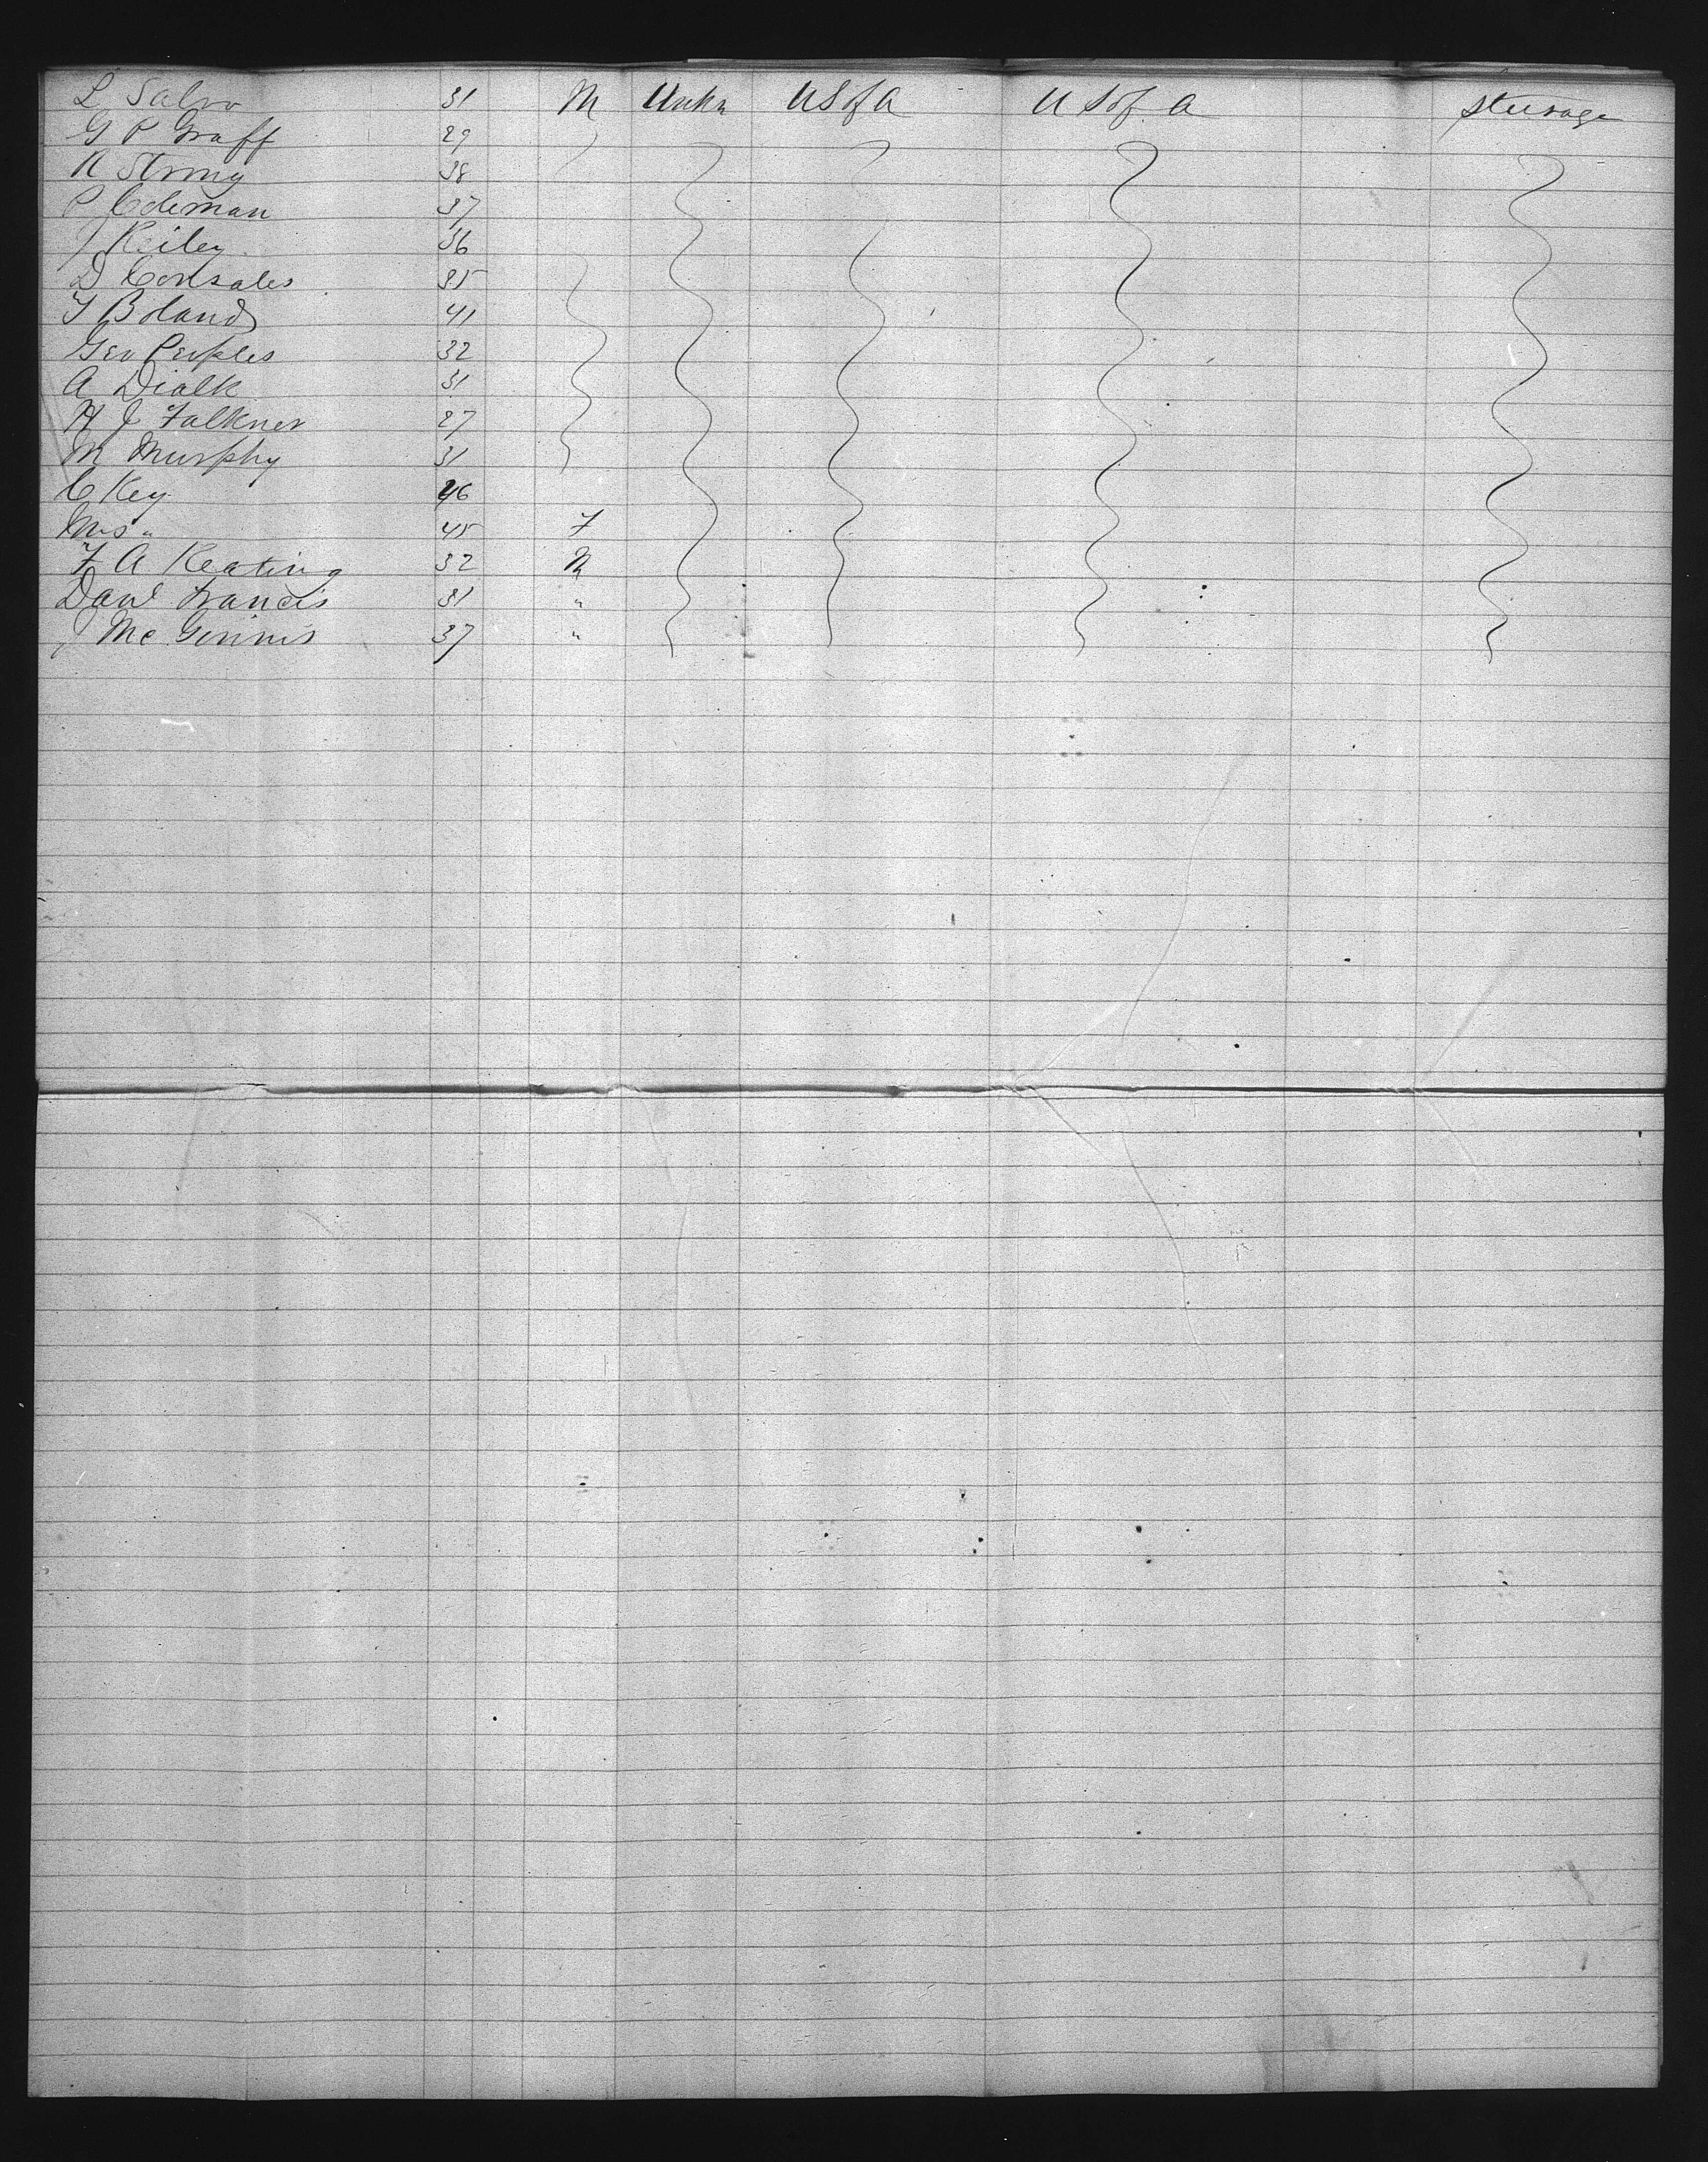 L Salvo 31 M Unkn U S of A U S of A steerage
G P Graff 29
R Strong 38
P Coleman 37
J Reiley 36
D Consales 35
T Boland 41
Geo Peoples 32
A Dialk 31
H J Falkner 27
M Murphy 31
C Key 46
Mrs " 45 F
F A Keating 32 M
Danl Francis 31 "
J Mc Ginnis 37 "